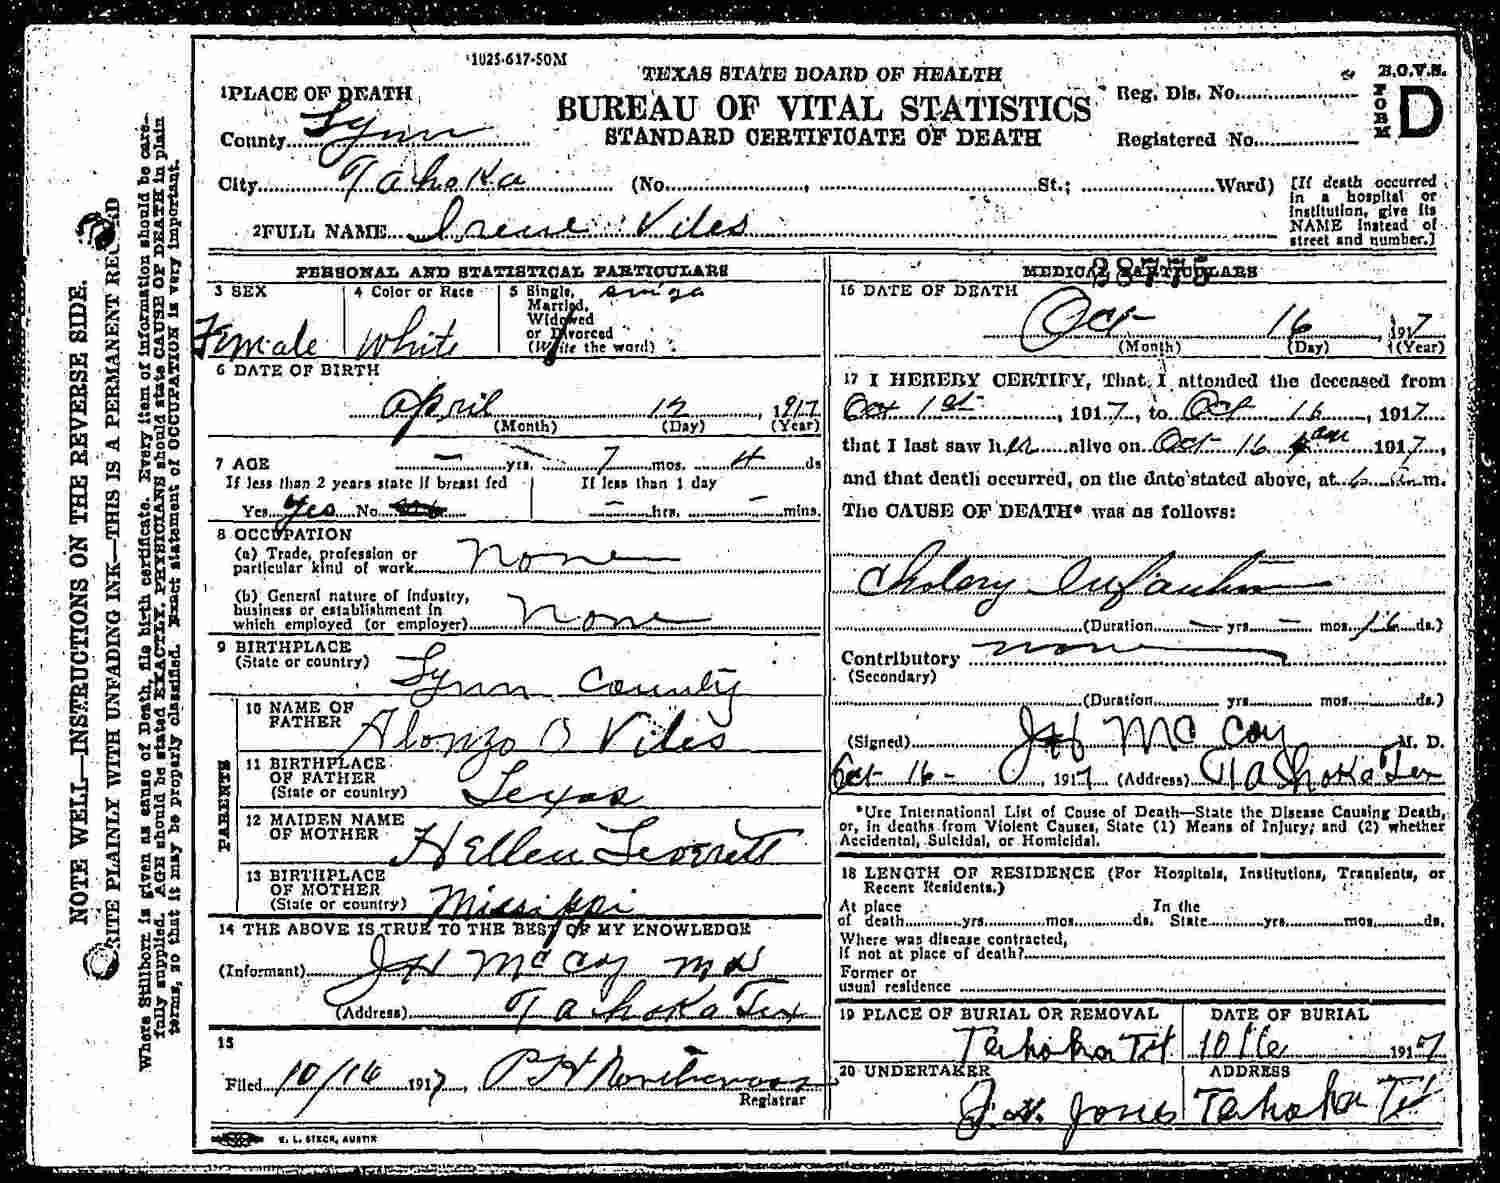 1025-617-50M
TEXAS STATE BOARD OF HEALTH
BUREAU OF VITAL STATISTICS
STANDARD CERTIFICATE OF DEATH
B.O.V.S.
FORM D
Reg. Dis. No.
Registered No.
1 PLACE OF DEATH
County Lynn
City Tahoka (No. , St.; Ward)
[If death occurred in a hospital or institution, give its NAME instead of street and number.]
2 FULL NAME Irene Viles
PERSONAL AND STATISTICAL PARTICULARS
3 SEX
Female
4 Color or Race
White
5 Single, Married, Widowed or Divorced (Write the word)
6 DATE OF BIRTH
April 12, 1917
(Month) (Day) (Year)
7 AGE
— yrs. 7 mos. 4 ds
If less than 2 years state if breast fed
Yes Yes No
If less than 1 day
— hrs. — mins.
8 OCCUPATION
(a) Trade, profession or particular kind of work none
(b) General nature of industry, business or establishment in which employed (or employer) none
9 BIRTHPLACE
(State or country) Lynn County
PARENTS
10 NAME OF FATHER Alonzo B Viles
11 BIRTHPLACE OF FATHER
(State or country) Texas
12 MAIDEN NAME OF MOTHER Hellen Leverett
13 BIRTHPLACE OF MOTHER
(State or country) Missippi
14 THE ABOVE IS TRUE TO THE BEST OF MY KNOWLEDGE
(Informant) J H McCoy MD
(Address) Tahoka Tex
15
Filed 10/16 1917,
Registrar
E. L. STECK, AUSTIN
MEDICAL PARTICULARS
28775
16 DATE OF DEATH
Oct 16 1917
(Month) (Day) (Year)
17 I HEREBY CERTIFY, That I attended the deceased from
Oct 1st, 1917, to Oct 16, 1917
that I last saw her alive on Oct 16 1917,
and that death occurred, on the date stated above, at 6 m.
The CAUSE OF DEATH* was as follows:
Cholery Infantum
(Duration — yrs. — mos. 16 ds.)
Contributory none
(Secondary)
(Duration yrs. mos. ds.)
(Signed) JH McCoy M. D.
Oct 16 - 1917 (Address) Tahoka Tex
*Use International List of Cause of Death—State the Disease Causing Death, or, in deaths from Violent Causes, State (1) Means of Injury; and (2) whether Accidental, Suicidal, or Homicidal.
18 LENGTH OF RESIDENCE (For Hospitals, Institutions, Transients, or Recent Residents.)
At place of death yrs. mos. ds. In the State yrs. mos. ds.
Where was disease contracted,
if not at place of death?
Former or
usual residence
19 PLACE OF BURIAL OR REMOVAL
Tahoka Tx
DATE OF BURIAL
10 16 1917
20 UNDERTAKER
J. H. Jones
ADDRESS
Tahoka Tx
NOTE WELL—INSTRUCTIONS ON THE REVERSE SIDE.
WRITE PLAINLY WITH UNFADING INK—THIS IS A PERMANENT RECORD
Where Stillborn is given as cause of Death, file birth certificate. Every item of information should be care-
fully supplied. AGE should be stated EXACTLY. PHYSICIANS should state CAUSE OF DEATH in plain
terms, so that it may be properly classified. Exact statement of OCCUPATION is very important.